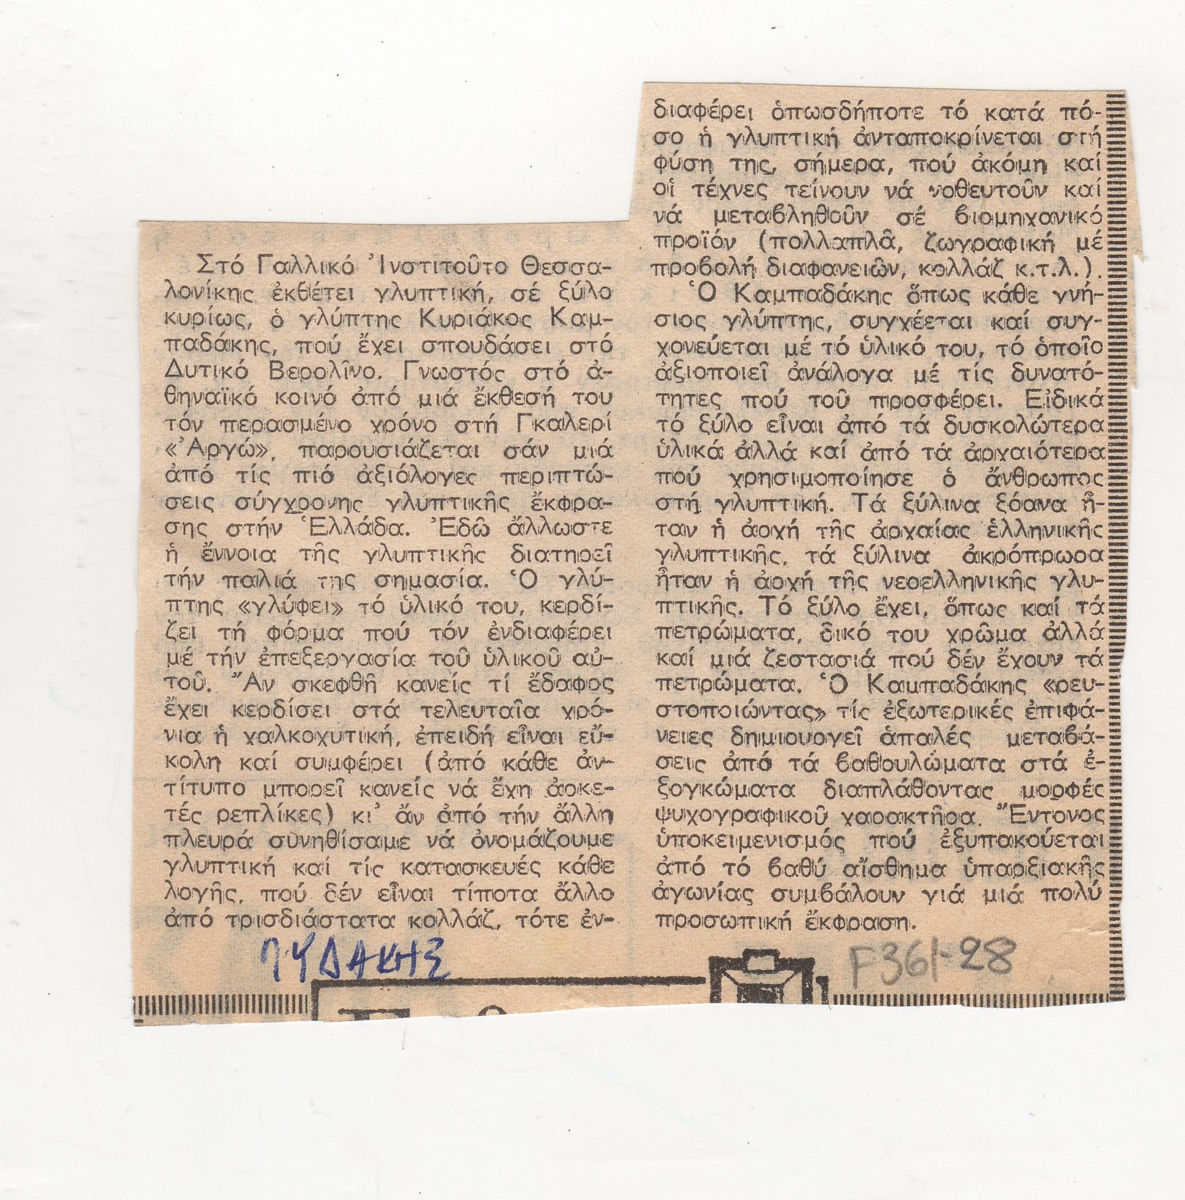 Στό Γαλλικό Ἰνστιτοῦτο Θεσσα-
λονίκης ἐκθέτει γλυπτική, σέ ξύλο
κυρίως, ὁ γλύπτης Κυριάκος Καμ-
παδάκης, πού ἔχει σπουδάσει στό
Δυτικό Βερολῖνο. Γνωστός στό ἀ-
θηναϊκό κοινό ἀπό μιά ἔκθεσή του
τόν περασμένο χρόνο στή Γκαλερί
«Ἀργώ», παρουσιάζεται σάν μιά
ἀπό τίς πιό ἀξιόλογες περιπτώ-
σεις σύγχρονης γλυπτικῆς ἔκφρα-
σης στήν Ἑλλάδα. Ἐδῶ ἄλλωστε
ἡ ἔννοια τῆς γλυπτικῆς διατηρεῖ
τήν παλιά της σημασία. Ὁ γλύ-
πτης «γλύφει» τό ὑλικό του, κερδί-
ζει τή φόρμα πού τόν ἐνδιαφέρει
μέ τήν ἐπεξεργασία τοῦ ὑλικοῦ αὐ-
τοῦ. Ἄν σκεφθῆ κανείς τί ἔδαφος
ἔχει κερδίσει στά τελευταῖα χρό-
νια ἡ χαλκοχυτική, ἐπειδή εἶναι εὔ-
κολη καί συμφέρει (ἀπό κάθε ἀν-
τίτυπο μπορεῖ κανείς νά ἔχη ἀρκε-
τές ρεπλίκες) κι' ἄν ἀπό τήν ἄλλη
πλευρά συνηθίσαμε νά ὀνομάζουμε
γλυπτική καί τίς κατασκευές κάθε
λογῆς, πού δέν εἶναι τίποτα ἄλλο
ἀπό τρισδιάστατα κολλάζ, τότε ἐν-
διαφέρει ὁπωσδήποτε τό κατά πό-
σο ἡ γλυπτική ἀνταποκρίνεται στή
φύση της, σήμερα, πού ἀκόμη καί
οἱ τέχνες τείνουν νά νοθευτοῦν καί
νά μεταβληθοῦν σέ βιομηχανικό
προϊόν (πολλαπλᾶ, ζωγραφική μέ
προβολή διαφανειῶν, κολλάζ κ.τ.λ.).
Ὁ Καμπαδάκης ὅπως κάθε γνή-
σιος γλύπτης, συγχέεται καί συγ-
χονεύεται μέ τό ὑλικό του, τό ὁποῖο
ἀξιοποιεῖ ἀνάλογα μέ τίς δυνατό-
τητες πού τοῦ προσφέρει. Εἰδικά
τό ξύλο εἶναι ἀπό τά δυσκολώτερα
ὑλικά ἀλλά καί ἀπό τά ἀρχαιότερα
πού χρησιμοποίησε ὁ ἄνθρωπος
στή γλυπτική. Τά ξύλινα ξόανα ἦ-
ταν ἡ ἀρχή τῆς ἀρχαίας ἑλληνικῆς
γλυπτικῆς, τά ξύλινα ἀκρόπρωρα
ἦταν ἡ ἀρχή τῆς νεοελληνικῆς γλυ-
πτικῆς. Τό ξύλο ἔχει, ὅπως καί τά
πετρώματα, δικό του χρῶμα ἀλλά
καί μιά ζεστασιά πού δέν ἔχουν τά
πετρώματα. Ὁ Καμπαδάκης «ρευ-
στοποιώντας» τίς ἐξωτερικές ἐπιφά-
νειες δημιουργεῖ ἁπαλές μεταβά-
σεις ἀπό τά βαθουλώματα στά ἐ-
ξογκώματα διαπλάθοντας μορφές
ψυχογραφικοῦ χαρακτῆρα. Ἔντονος
ὑποκειμενισμός πού ἐξυπακούεται
ἀπό τό βαθύ αἴσθημα ὑπαρξιακῆς
ἀγωνίας συμβάλουν γιά μιά πολύ
προσωπική ἔκφραση.
F361-28